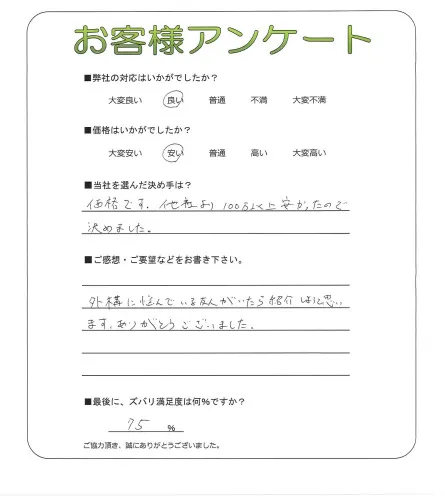 お客様アンケート
■弊社の対応はいかがでしたか?
大変良い 良い 普通 不満 大変不満
■価格はいかがでしたか?
大変安い 安い 普通 高い 大変高い
■当社を選んだ決め手は?
価格です。他社より100万以上安かったので
決めました。
■ご感想・ご要望などをお書き下さい。
外構に悩んでいる友人がいたら紹介しようと思い
ます。ありがとうございました。
■最後に、ズバリ満足度は何%ですか?
75 %
ご協力頂き、誠にありがとうございました。